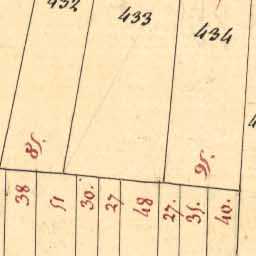 432
433
434
85.
95.
38
51
30.
27
48
27.
35.
40.
4